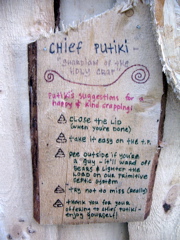 CHIEF PUTIKI
"GUARDIAN OF THE
HOLY CRAP"
Putiki's suggestions for a
happy & kind crapping:
CLOSE THE LID
(when you're done)
take it easy on the T.P.
pee outside if you're
a guy - it'll ward off
bears & lighten the
load on our primitive
septic system
try not to miss (really)
thank you for your
offering to chief putiki -
enjoy yourself!